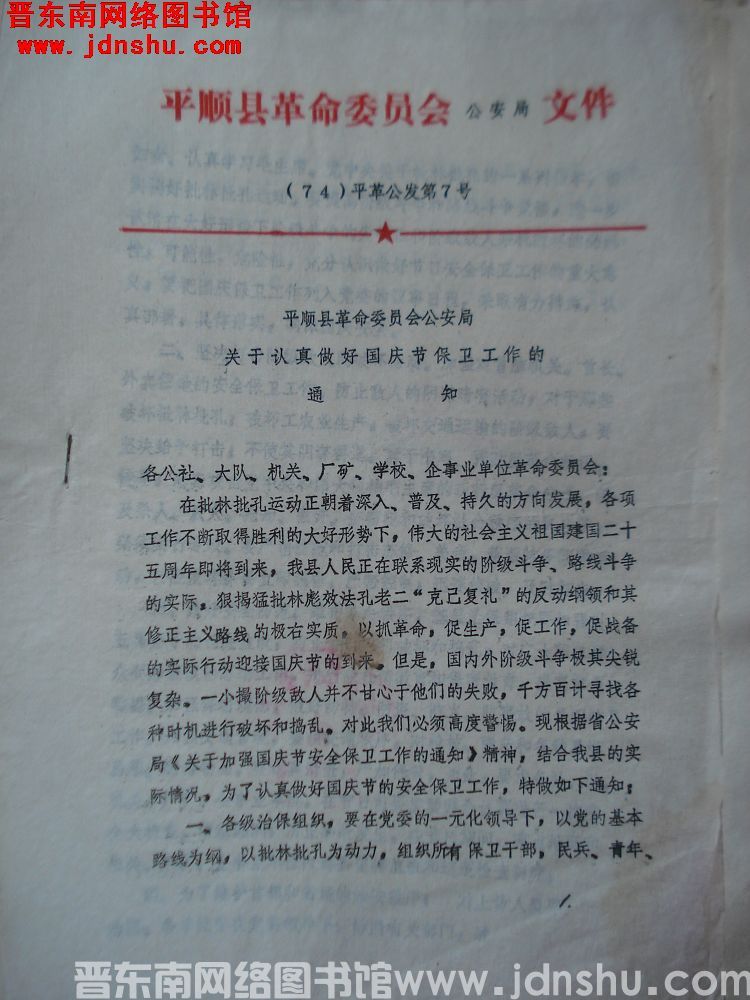 晋东南网络图书馆
www.jdnshu.com
平顺县革命委员会 公安局 文件
(74)平革公发第7号
平顺县革命委员会公安局
关于认真做好国庆节保卫工作的
通 知
各公社、大队、机关、厂矿、学校、企事业单位革命委员会:
在批林批孔运动正朝着深入、普及、持久的方向发展,各项
工作不断取得胜利的大好形势下,伟大的社会主义祖国建国二十
五周年即将到来,我县人民正在联系现实的阶级斗争、路线斗争
的实际。狠揭猛批林彪效法孔老二“克己复礼”的反动纲领和其
修正主义路线的极右实质。以抓革命,促生产,促工作,促战备
的实际行动迎接国庆节的到来。但是,国内外阶级斗争极其尖锐
复杂。一小撮阶级敌人并不甘心于他们的失败,千方百计寻找各
种时机进行破坏和捣乱。对此我们必须高度警惕。现根据省公安
局《关于加强国庆节安全保卫工作的通知》精神,结合我县的实
际情况,为了认真做好国庆节的安全保卫工作,特做如下通知:
一、各级治保组织,要在党委的一元化领导下,以党的基本
路线为纲,以批林批孔为动力,组织所有保卫干部,民兵、青年、
1.
晋东南网络图书馆www.jdnshu.com